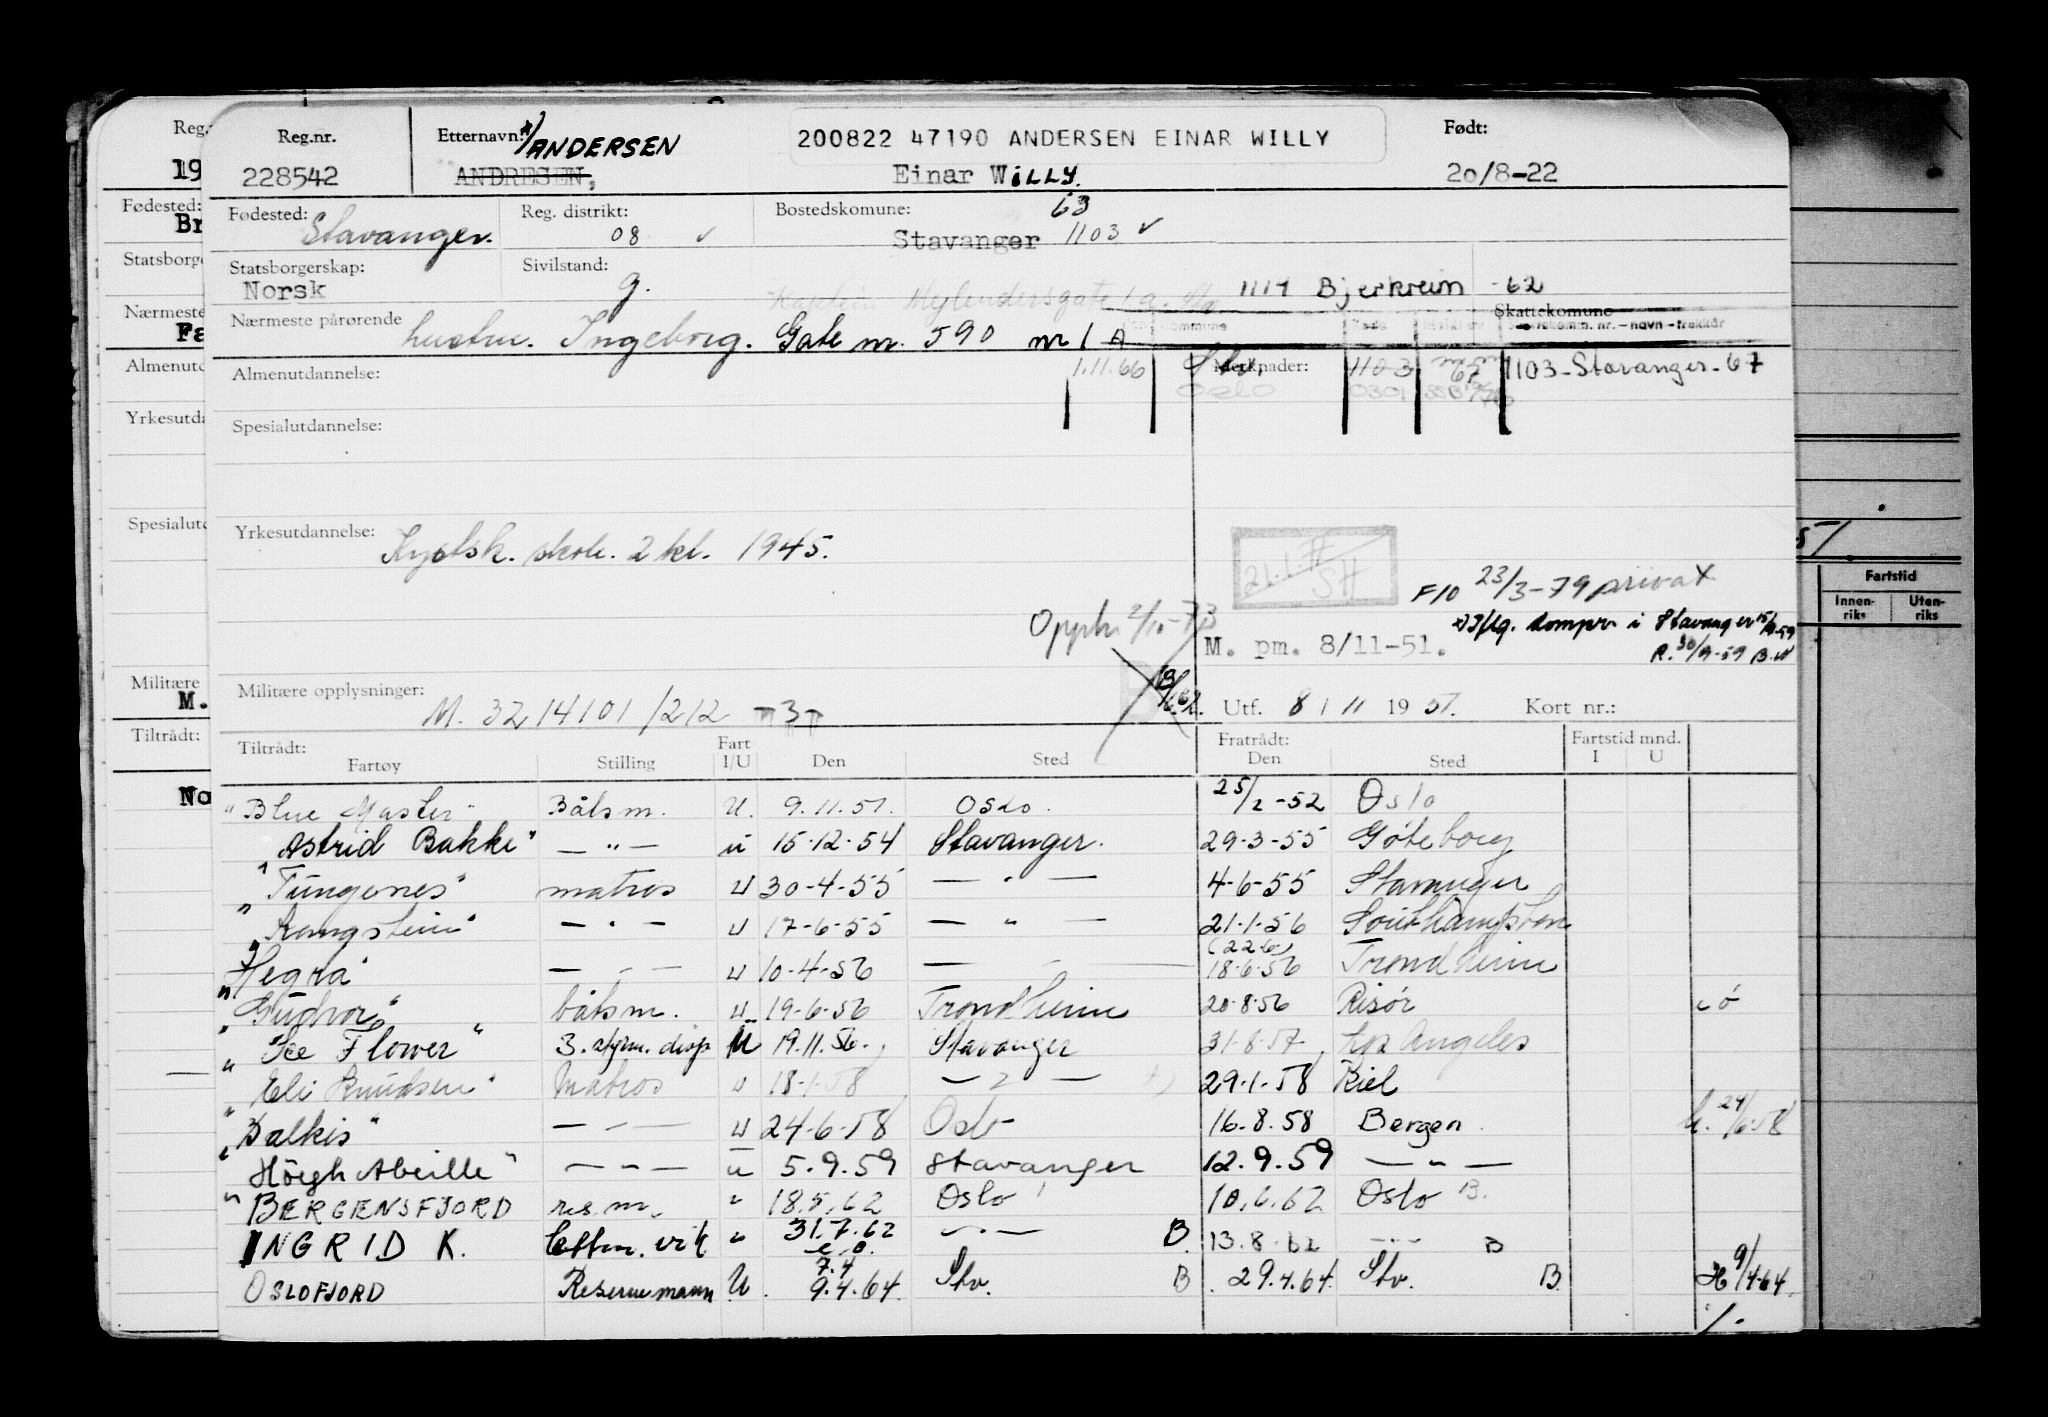 Reg.nr. Etternavn: x) ANDERSEN 200822 47190 ANDERSEN EINAR WILLY Født:
228542 ANDRESEN, Einar WiLLY. 20/8-22
Fødested: Stavanger. Reg. distrikt: 08 ✓ Bostedskomune: Stavanger 63 1103 ✓
Statsborgerskap: Norsk Sivilstand: g. 1114 Bjerkreim -62
Skattekomune
Nærmeste pårørende hustru. Ingeborg. Gate nr. 590 nr 1 A
Almenutdannelse: 1.11.66 Stv. Merknader: 1103 67 1103-Stavanger-67
Oslo 0301
Spesialutdannelse:
Yrkesutdannelse: Kystsk. skole. 2 kl. 1945.
21.1. SH
F10 23/3-79 privat
Opph 2/10-73
x) Iflg. kompr. i Stavanger
R. 30/9-59 B.W
M. pm. 8/11-51.
Militære opplysninger: M. 3214101/212 Utf. 8/11 1951. Kort nr.:
Tiltrådt: Fratrådt: Fartstid mnd.
Fartøy Stilling Fart I/U Den Sted Den Sted I U
"Blue Master" Båtsm. U. 9.11.51. Oslo. 25/2-52 Oslo
"Astrid Bakke" — " — u 15.12.54 Stavanger. 29.3-55 Göteborg
"Tungenes" matros u 30-4-55 — " — 4-6-55 Stavanger
"Kongsteim" — " — u 17-6-55 — " — 21.1.56 Southampton
(22.6)
"Hegra" — " — u 10-4-56 — — 18.6.56 Trondheim
"Gudvor" båtsm. u 19-6-56 Trondheim 20.8.56 Risör
"See Flower" 3. styrm. disp U 19.11.56. Stavanger 31-8-57 Los Angeles
"Eli Knudsen" Matros u 18-1-58 — " — 29-1-58 Kiel
"Balkis" — " — u 24-6-58 Oslo 16.8.58 Bergen. 24/6-58
"Höegh Abeille" — " — u 5.9.59 Stavanger 12.9.59 — " —
"BERGENSFJORD res.m. " 18.5.62 Oslo 10.6.62 Oslo B.
INGRID K. lettm. vik " 31.7.62 — " — B. 13.8.62 — " — B
7.4
OSLOFJORD Reservemann U. 9.4.64 Stv. B. 29.4.64. Stv. B. H 9/4-64
Reg.
19
Fødested:
Br
Statsborge
Nærmeste
Fa
Almenutd
Yrkesutda
Spesialutd
Militære
M.
Tiltrådt:
No
Fartstid
Innen-riks Uten-riks